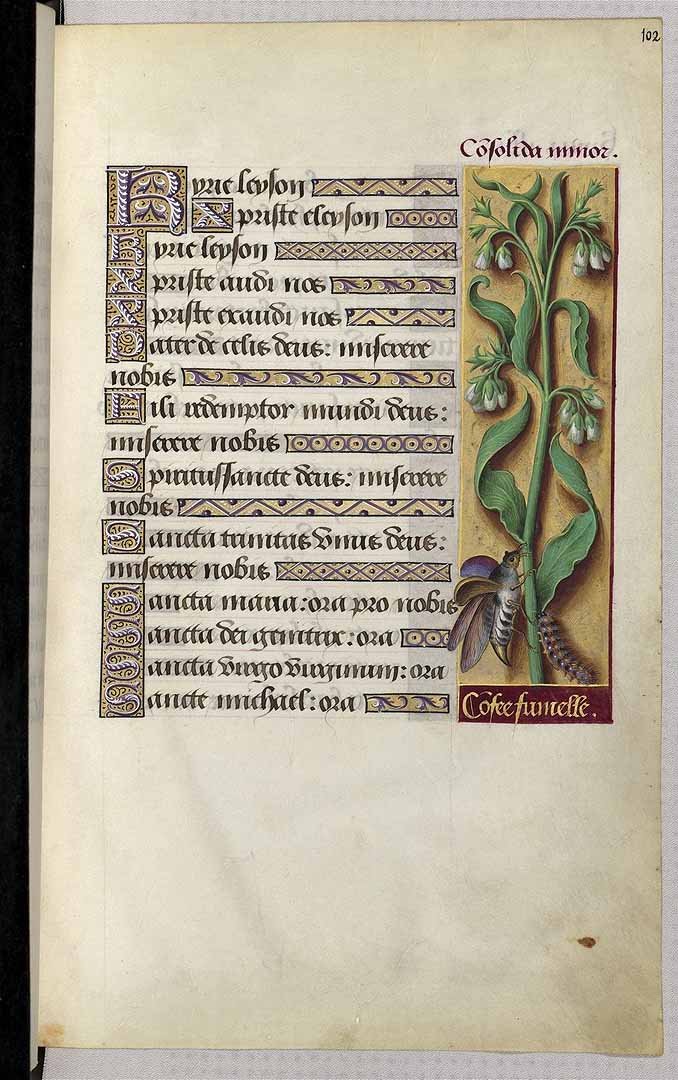 102
Cõsolida minor.
Kyrie leyson
Xpriste eleyson
Kyrie leyson
Xpriste audi nos
Xpriste exaudi nos
Pater de celis deus: miserere
nobis
Fili redemptor mundi deus:
miserere nobis
Spiritussancte deus: miserere
nobis
Sancta trinitas vnus deus:
miserere nobis
Sancta maria: ora pro nobis
Sancta dei genitrix: ora
Sancta virgo virginum: ora
Sancte michael: ora
Cõsee fumelle.